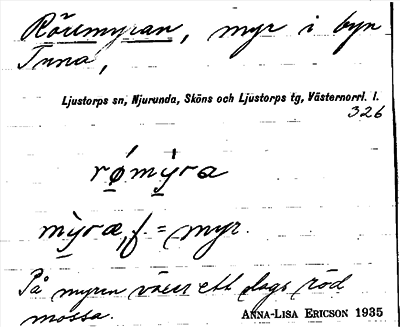 Rörmyran, myr i byn
Tunna,
Ljustorps sn, Njurunda, Sköns och Ljustorps tg, Västernorrl. l.
326
rǿmy̖ra
mỳræ, f. = myr.
På myren växer ett slags röd
mossa.
ANNA-LISA ERICSON 1935